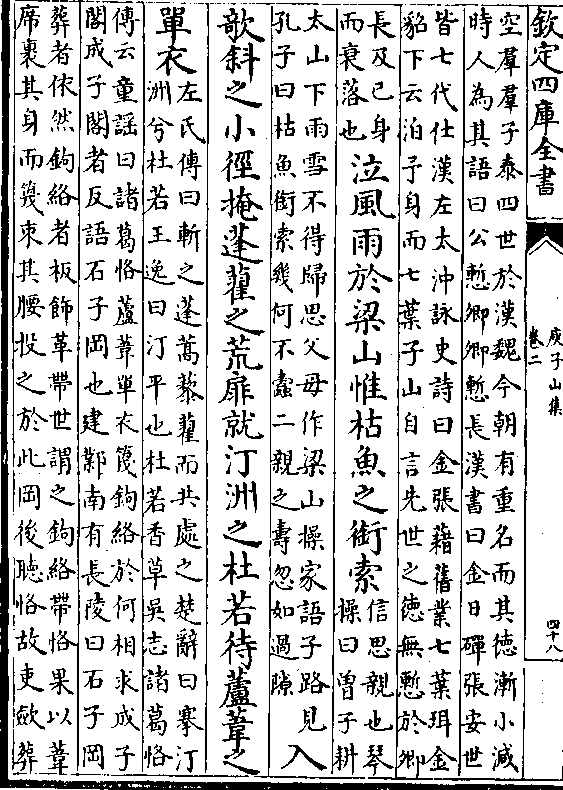 欽定四庫全書
庾子山集
卷二
四十八
空羣羣子泰四世於漢魏今朝有重名而其徳漸小減
時人為其語曰公慙卿卿慙長漢書曰金日磾張安世
皆七代仕漢左太沖詠史詩曰金張藉舊業七葉珥金
貂下云泊予身而七葉子山自言先世之徳無慙於卿
長及已身
而衰落也
泣風雨於梁山惟枯魚之銜索
信思親也琴
操曰曾子耕
太山下雨雪不得歸思父母作梁山操家語子路見
孔子曰枯魚銜索幾何不蠹二親之壽忽如過隙
入
欹斜之小徑掩蓬藋之荒扉就汀洲之杜若待蘆葦之
單衣
左氏傳曰斬之蓬蒿藜藋而共處之楚辭曰搴汀
洲兮杜若王逸曰汀平也杜若香草吳志諸葛恪
傳云童謡曰諸葛恪蘆葦單衣篾鉤絡於何相求成子
閣成子閣者反語石子岡也建鄴南有長陵曰石子岡
葬者依然鉤絡者板飾革帶世謂之鉤絡帶恪果以葦
席裹其身而篾束其腰投之於此岡後聽恪故吏歛葬